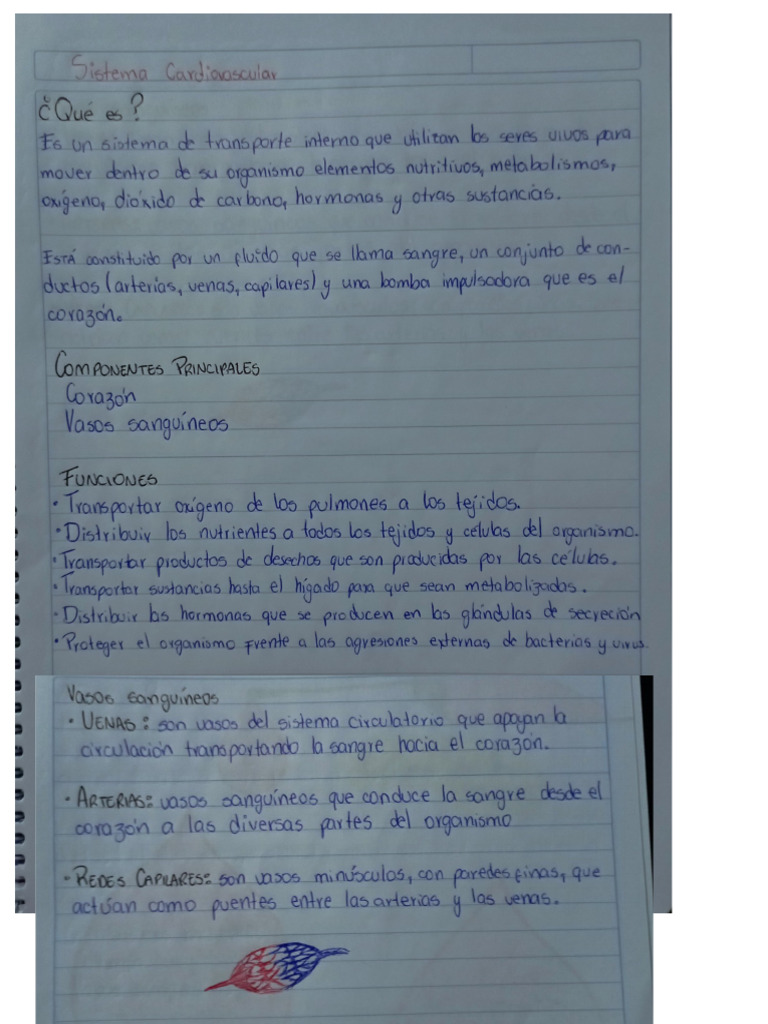 Sistema Cardiovascular
¿Qué es?
Es un sistema de transporte interno que utilizan los seres vivos para
mover dentro de su organismo elementos nutritivos, metabolismos,
oxígeno, dióxido de carbono, hormonas y otras sustancias.
Está constituido por un fluido que se llama sangre, un conjunto de con-
ductos (arterias, venas, capilares) y una bomba impulsadora que es el
corazón.
COMPONENTES PRINCIPALES
Corazón
Vasos sanguíneos
FUNCIONES
• Transportar oxígeno de los pulmones a los tejidos.
• Distribuir los nutrientes a todos los tejidos y células del organismo.
• Transportar productos de desechos que son producidas por las células.
• Transportar sustancias hasta el hígado para que sean metabolizadas.
• Distribuir las hormonas que se producen en las glándulas de secreción
• Proteger el organismo frente a las agresiones externas de bacterias y virus.
Vasos sanguíneos
• VENAS: son vasos del sistema circulatorio que apoyan la
circulación transportando la sangre hacia el corazón.
• ARTERIAS: vasos sanguíneos que conduce la sangre desde el
corazón a las diversas partes del organismo
• REDES CAPILARES: son vasos minúsculos, con paredes finas, que
actúan como puentes entre las arterias y las venas.